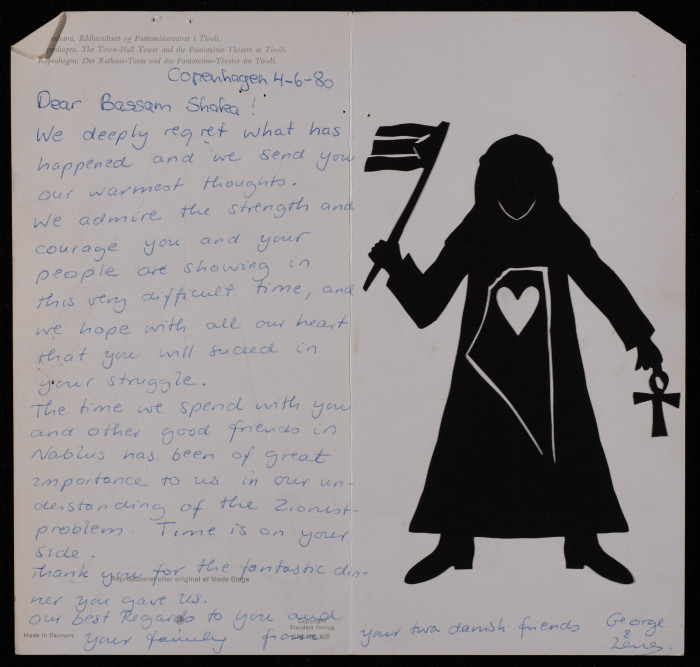 Rådhustårnet og Pantomimeteatret i Tivoli.
Copenhagen. The Town-Hall Tower and the Pantomime Theatre at Tivoli.
Kopenhagen. Der Rathaus-Turm und das Pantomime-Theater im Tivoli.
Copenhagen 4-6-80
Dear Bassam Shaka!
We deeply regret what has
happened and we send you
our warmest thoughts.
We admire the strength and
courage you and your
people are showing in
this very difficult time, and
we hope with all our heart
that you will suceed in
your struggle.
The time we spend with you
and other good friends in
Nablus has been of great
importance to us in our un-
derstanding of the Zionist-
problem. Time is on your
side.
Thank you for the fantastic din-
Reproduceret efter original af Mads Stage
ner you gave us.
our best Regards to you and
Copyright
Stenders Forlag
Made in Denmark
your family from your two danish friends George
&